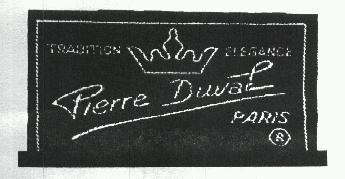 TRADITION ELEGANCE
Pierre Duval
PARIS
®